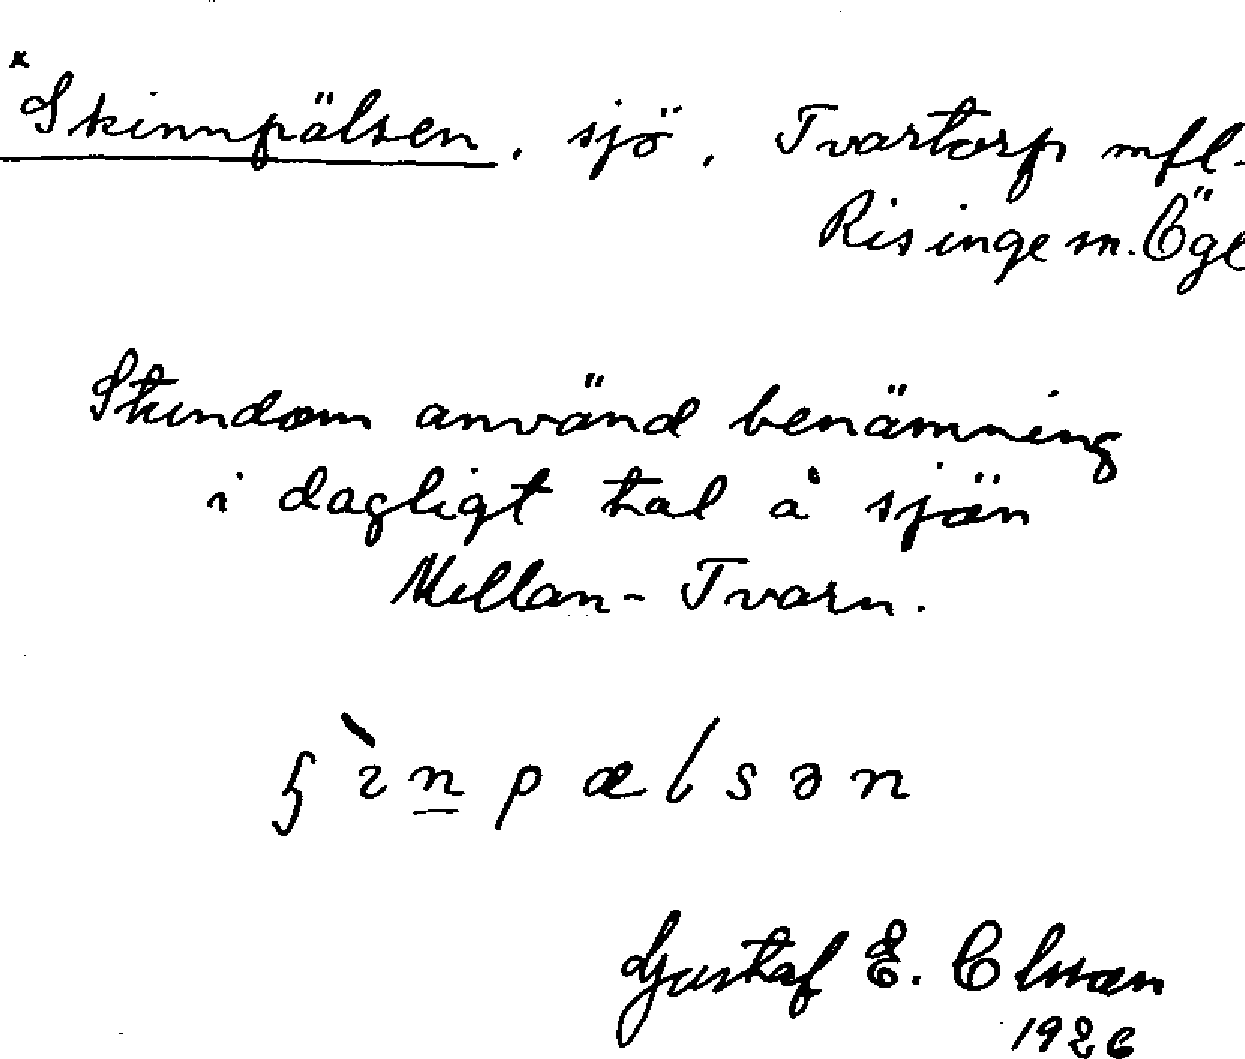 x
Skinnpälsen, sjö, Tvartorp mfl.
Risinge sn. Ögl
Stundom använd benämning
i dagligt tal å sjön
Mellan-Tvarn.
Gustaf E. Olsson
1926